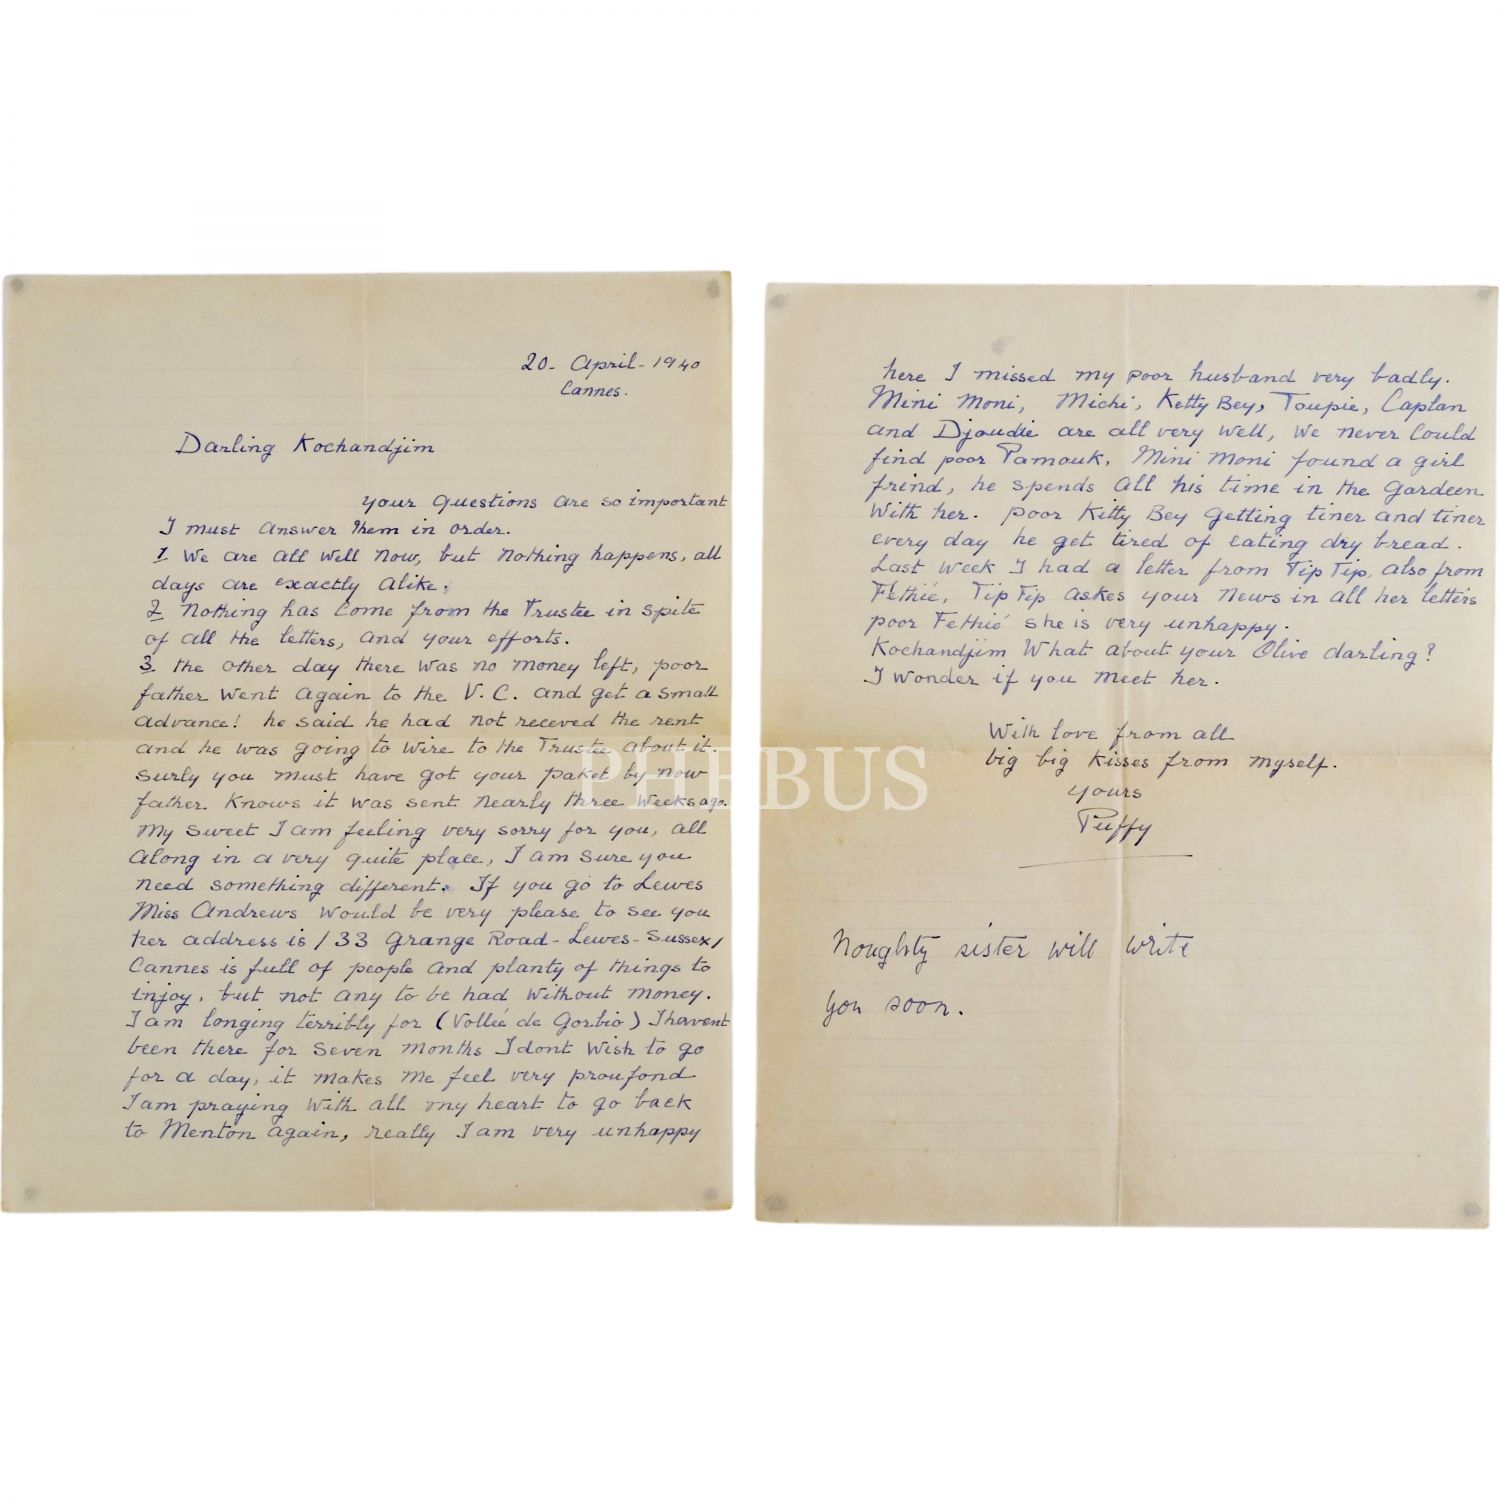 20- April-1940
Cannes.
Darling Kochandjim
your questions are so important
I must answer them in order.
1 We are all well now, but nothing happens, all
days are exactly alike.
2 nothing has come from the Trustee in spite
of all the letters, and your efforts.
3. the other day there was no money left, poor
father went again to the V.C. and get a small
advance! he said he had not receved the rent
and he was going to wire to the Trustee about it.
surly you must have got your paket by now
father knows it was sent nearly three weeks ago.
my sweet I am feeling very sorry for you, all
along in a very quite place, I am sure you
need something different. If you go to Lewes
Miss Andrews would be very please to see you
her address is /33 Grange Road-Lewes-Sussex/
Cannes is full of people and planty of things to
injoy, but not any to be had without money.
I am longing terribly for (Vollée de Gorbio) I havent
been there for seven months I dont wish to go
for a day, it makes me feel very proufond
I am praying with all my heart to go back
to Menton again, really I am very unhappy
here I missed my poor husband very badly.
Mini Moni, Michi, Ketty Bey, Toupie, Captan
and Djoudie are all very well, we never could
find poor Pamouk. Mini Moni found a girl
frind, he spends all his time in the gardeen
with her. poor Kitty Bey getting tiner and tiner
every day he get tired of eating dry bread.
Last week I had a letter from Tip Tip, also from
Fethié, Tip Tip askes your news in all her letters
poor Fethié she is very unhappy.
Kochandjim What about your Olive darling?
I wonder if you meet her.
With love from all
big big kisses from myself.
yours
Puffy
Noughty sister will write
you soon.
PHEBUS